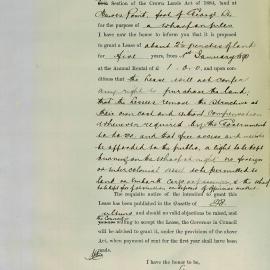 Section of the Crown Lands Act of 1884,
Point, foot of
for the purpose of a wharf
I have now the honor to inform you that it is proposed
to grant a Lease of about 2½ perches of land
for five years, from 1st January
at the Annual Rental of £ 1. 0. 0. and upon con-
ditions that the Lease will not confer
any right to purchase the land;
that the lessees remove the structure at
their own cost and without compensation
whenever required by the Government
so to do, and that free access and
be afforded to the public, a light to be kept
burning on the wharf at night no foreign
or intercolonial vessel to be permitted to
land or embark cargo or passengers at the wharf
The requisite notice of the intended to grant this
Lease has been published in the Gazette of
and should no valid objections be raised, and
willing to accept the Lease, the Governor in Council
will be advised to grant it, under the provisions of the above
Act, when payment of rent for the first year shall have been
made.
I have the honor to be,